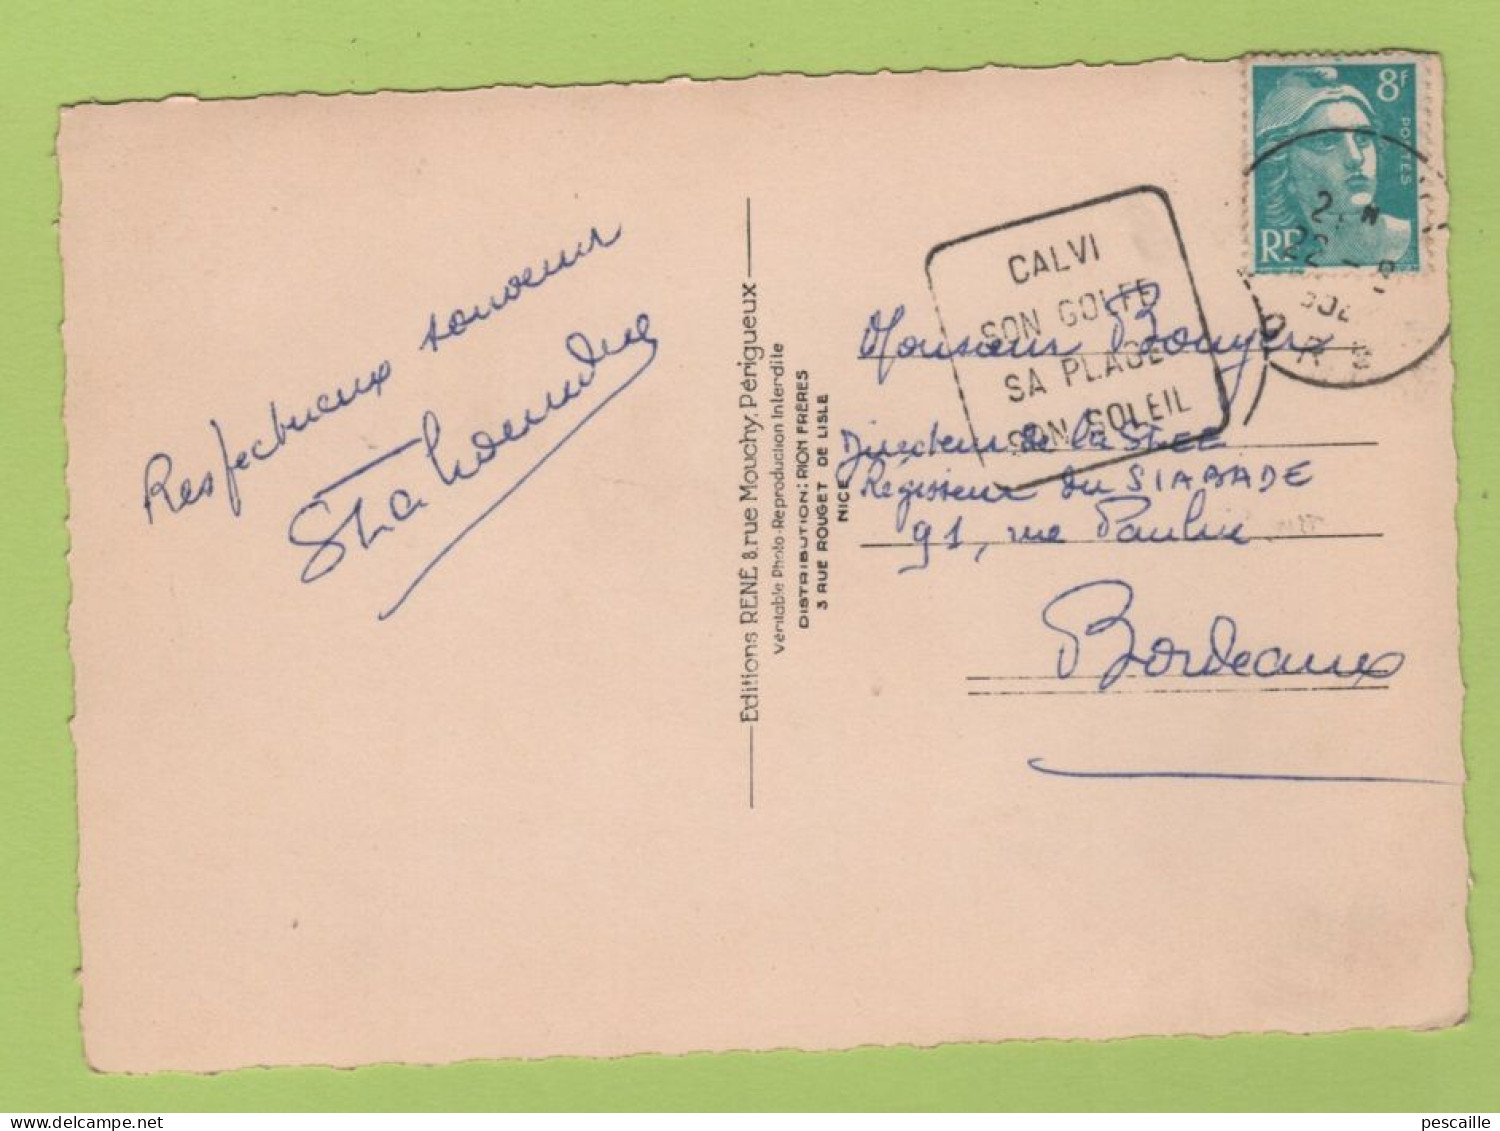 Respectueux souvenir
8F
POSTES
RF
CALVI
SON GOLFE
SA PLAGE
SON SOLEIL
Monsieur Bouyer
Directeur de la STEE
Régisseur du SIABADE
91, rue Paulin
Bordeaux
Editions RENÉ 8, rue Mouchy, Périgueux
Véritable Photo - Reproduction Interdite
DISTRIBUTION: RION FRÈRES
3 RUE ROUGET DE LISLE
NICE
pescaille